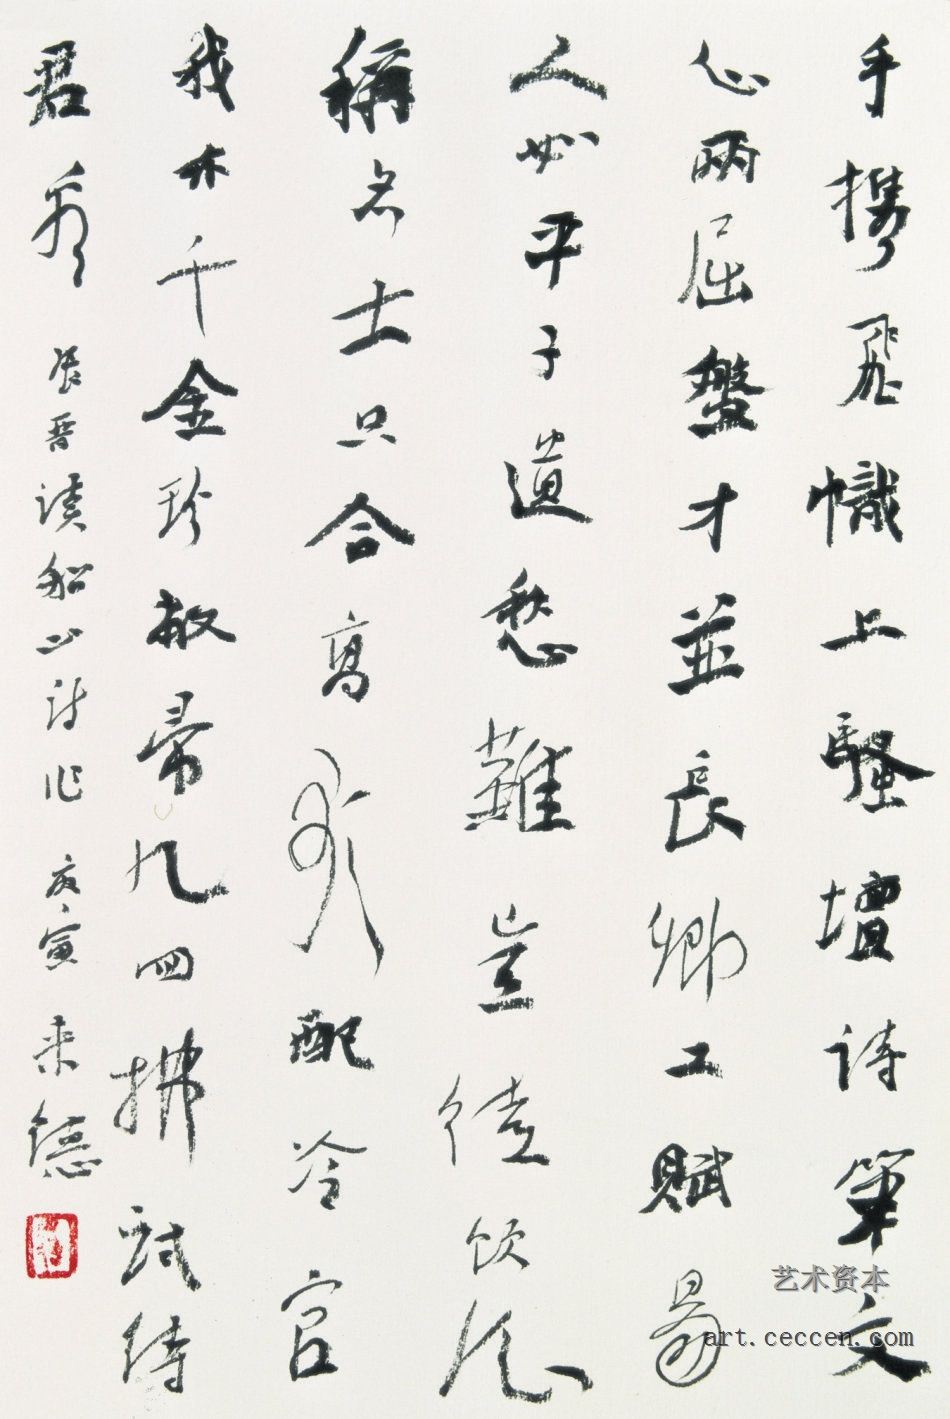 手攜飛幟上騷壇詩筆文
心兩屈盤才並長卿工賦易
人如平子道愁難豈徒飲酒
稱名士只合高歌配冷官
我亦千金珍敝帚几回拂拭待
君看 張晉讀船山詩作 庚寅 来
艺术资本
art.ceccen.com